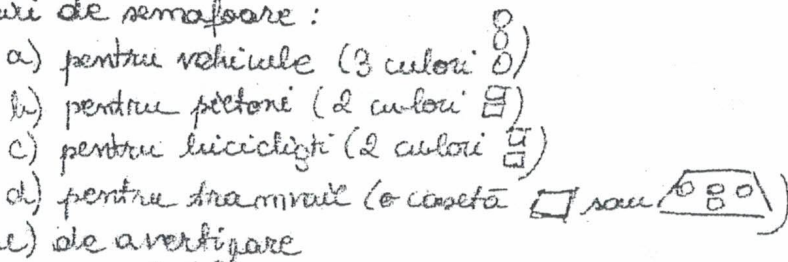 uri de semafoare :
a) pentru vehicule (3 culori )
b) pentru pietoni (2 culori )
c) pentru bicicliști (2 culori )
d) pentru tramvaie (o casetă sau )
e) de avertizare